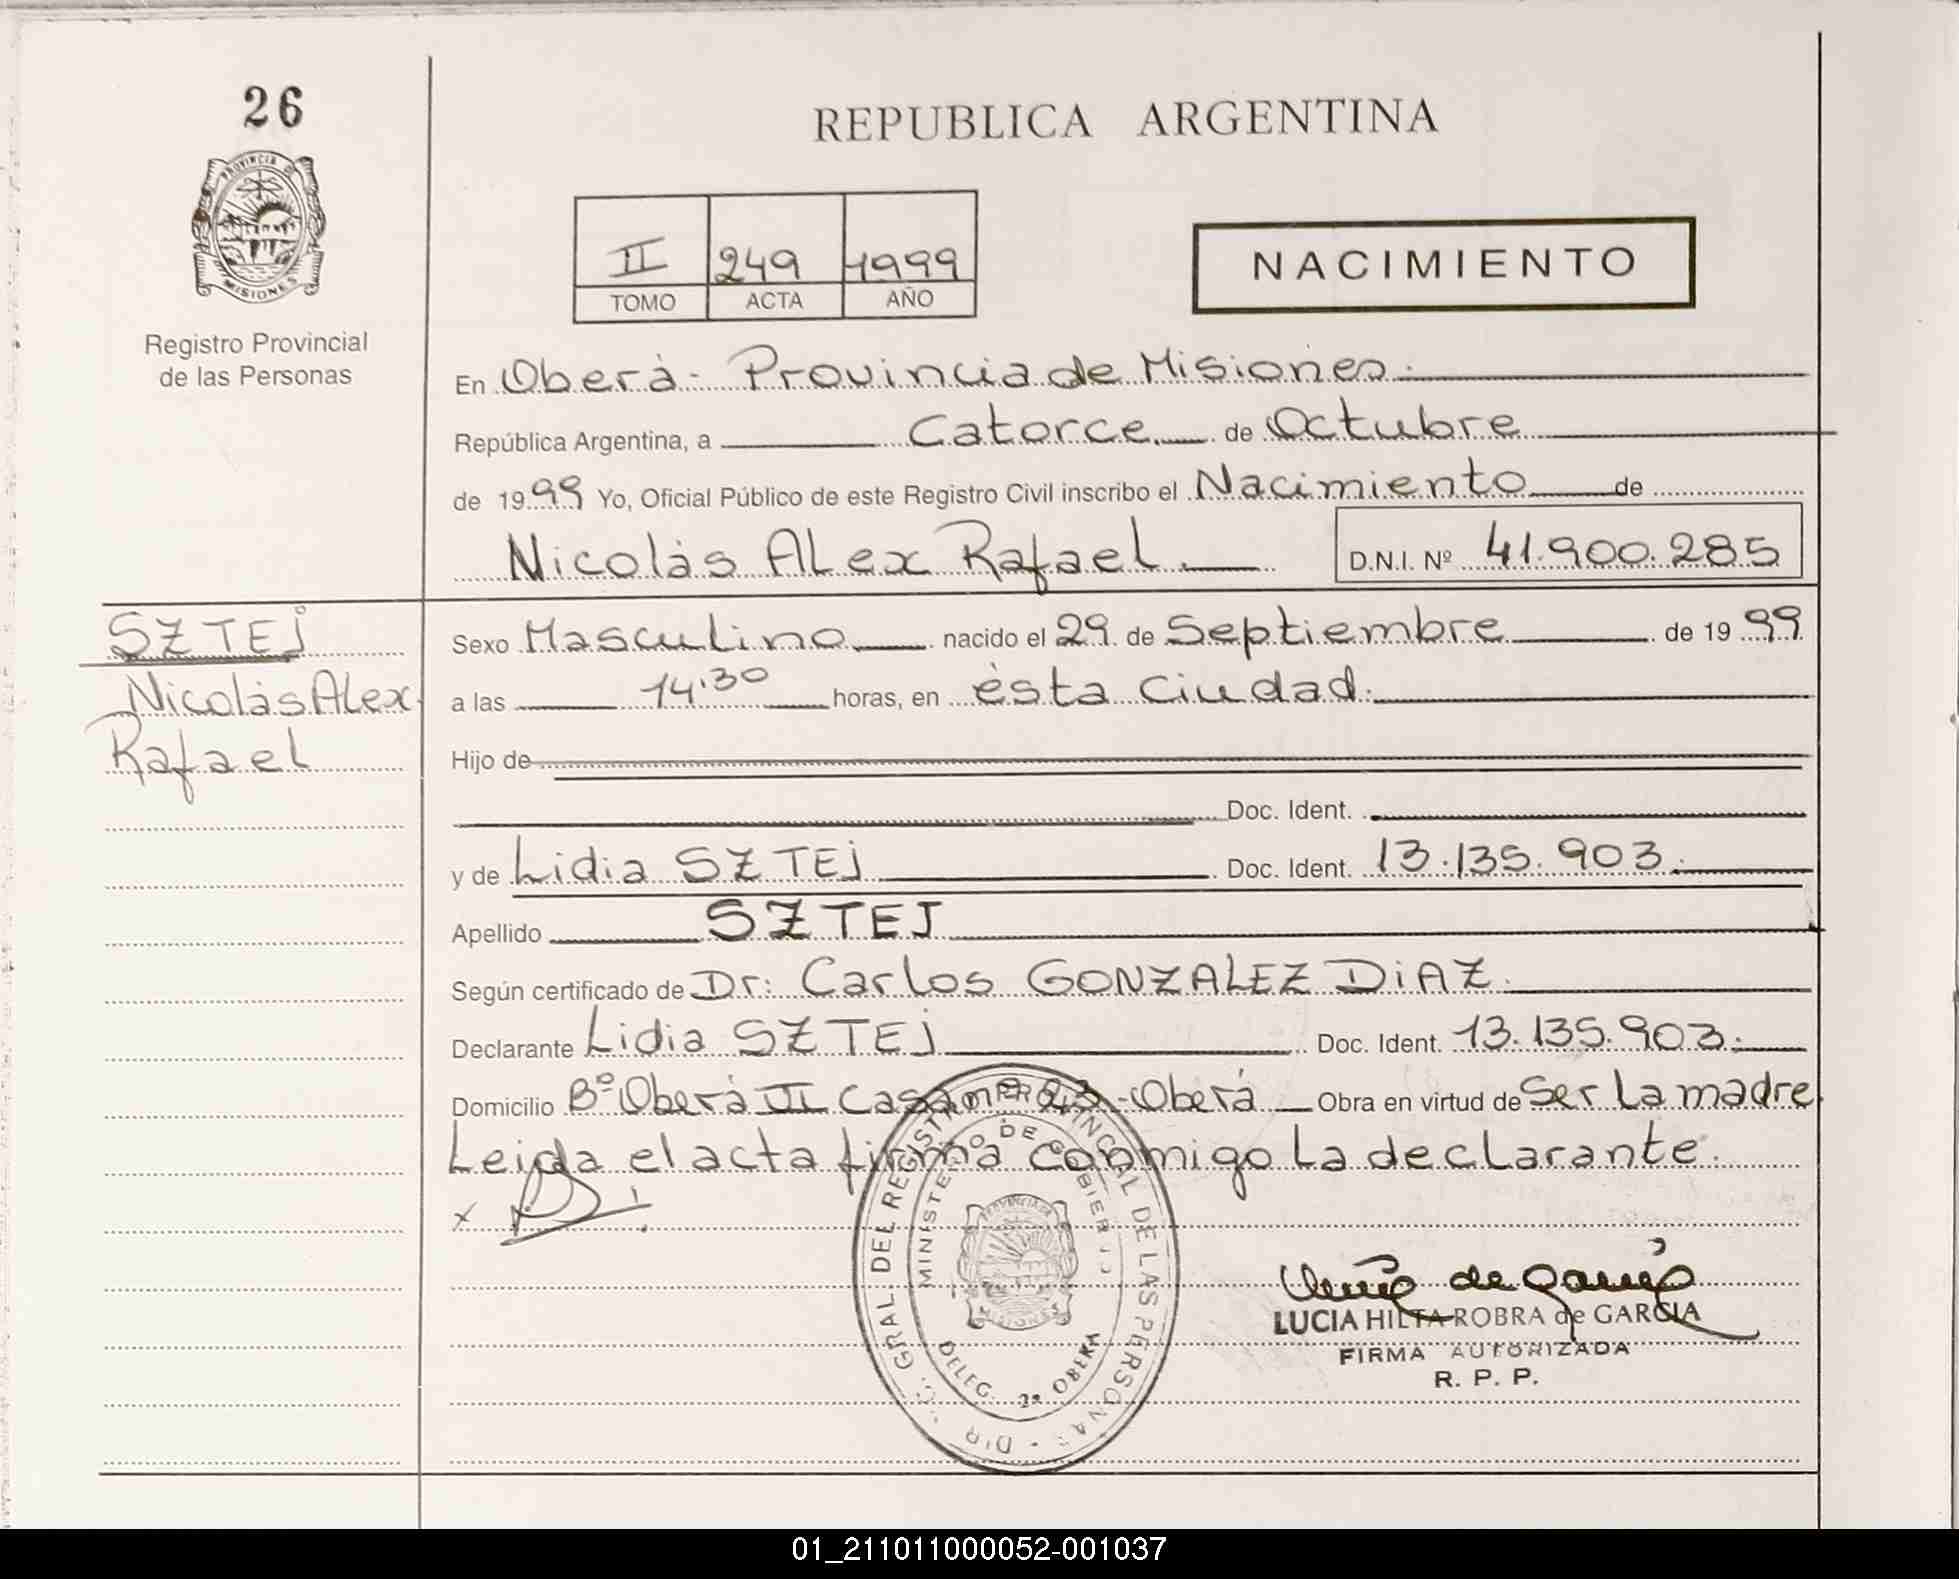 26
PROVINCIA DE
MISIONES
Registro Provincial
de las Personas
REPUBLICA ARGENTINA
II 249 1999
TOMO ACTA AÑO
NACIMIENTO
En Oberá - Provincia de Misiones.
República Argentina, a Catorce de Octubre
de 1999 Yo, Oficial Público de este Registro Civil inscribo el Nacimiento de
Nicolás Alex Rafael. D.N.I. Nº 41.900.285
SZTEJ
Nicolás Alex
Rafael
Sexo Masculino nacido el 29 de Septiembre de 1999
a las 14:30 horas, en ésta Ciudad.
Hijo de
Doc. Ident.
y de Lidia SZTEJ Doc. Ident. 13.135.903.
Apellido SZTEJ
Según certificado de Dr: Carlos GONZALEZ DIAZ.
Declarante Lidia SZTEJ Doc. Ident. 13.135.903.
Domicilio Bº Oberá II Casa nº 23 - Oberá Obra en virtud de Ser La madre
Leida el acta firma conmigo La declarante.
x
GRAL. DEL REGISTRO PROVINCIAL DE LAS PERSONAS - DIR.
MINISTERIO DE GOBIERNO
MISIONES
DELEG. 2ª OBERA
LUCIA HILTA ROBRA de GARCIA
FIRMA AUTORIZADA
R. P. P.
01_211011000052-001037